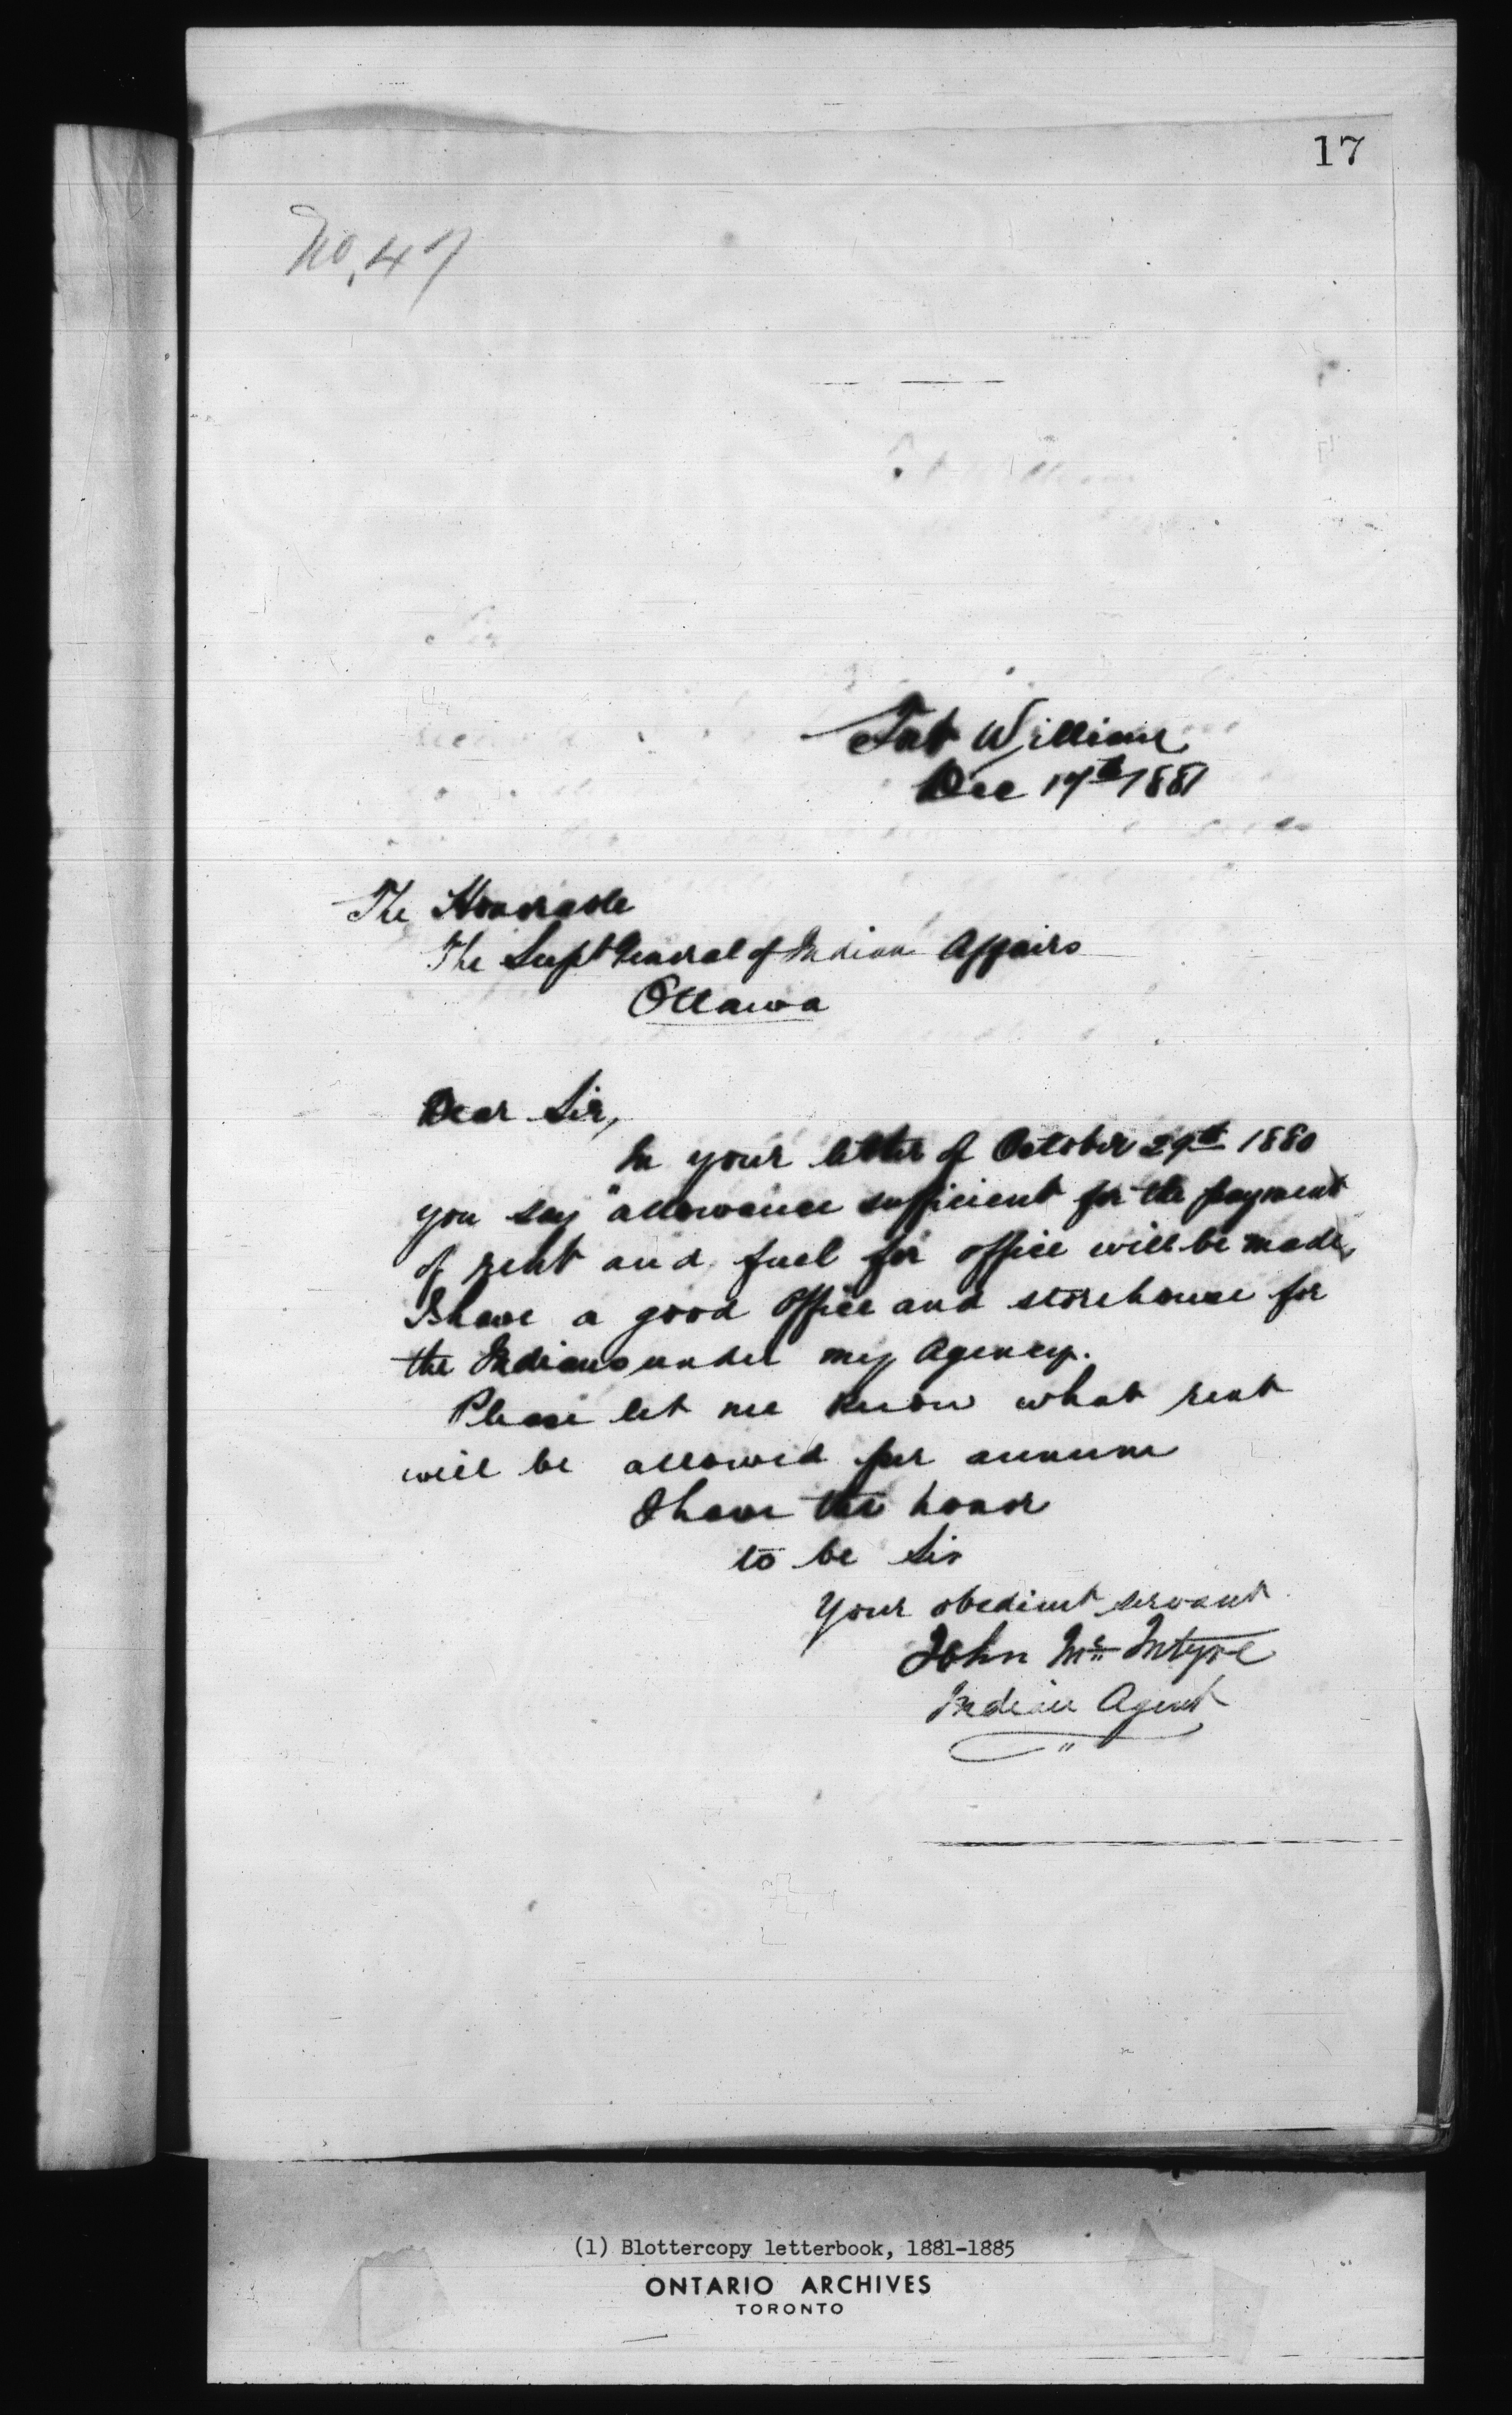 17
No. 47
Fort William
Dec 17th 1881
The Honorable
The Supt General of Indian Affairs
Ottawa
Dear Sir,
In your letter of October 29th 1880
you say "allowance sufficient for the payment
of rent and fuel for office will be made,
I have a good office and storehouse for
the Indians under my Agency.
Please let me know what rent
will be allowed per annum
I have the honor
to be Sir
Your obedient servant
John Mc Intyre
Indian Agent
(1) Blottercopy letterbook, 1881-1885
ONTARIO ARCHIVES
TORONTO